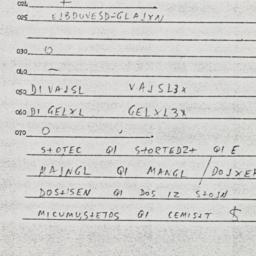 024 +
025 EJ3DUVESD=GLAJXN
030 O
040 —
050 DI VAJSL VAJSL3X
060 DI GELXL GELXL3X
070 O
S+OTEC QI S+ORTEDZ+ QI E
MAJNGL QI MANGL / DOJXER
DOS+SEN QI DOS IZ S+OJN
MICUMUS+ETOS QI CEMIS+T $